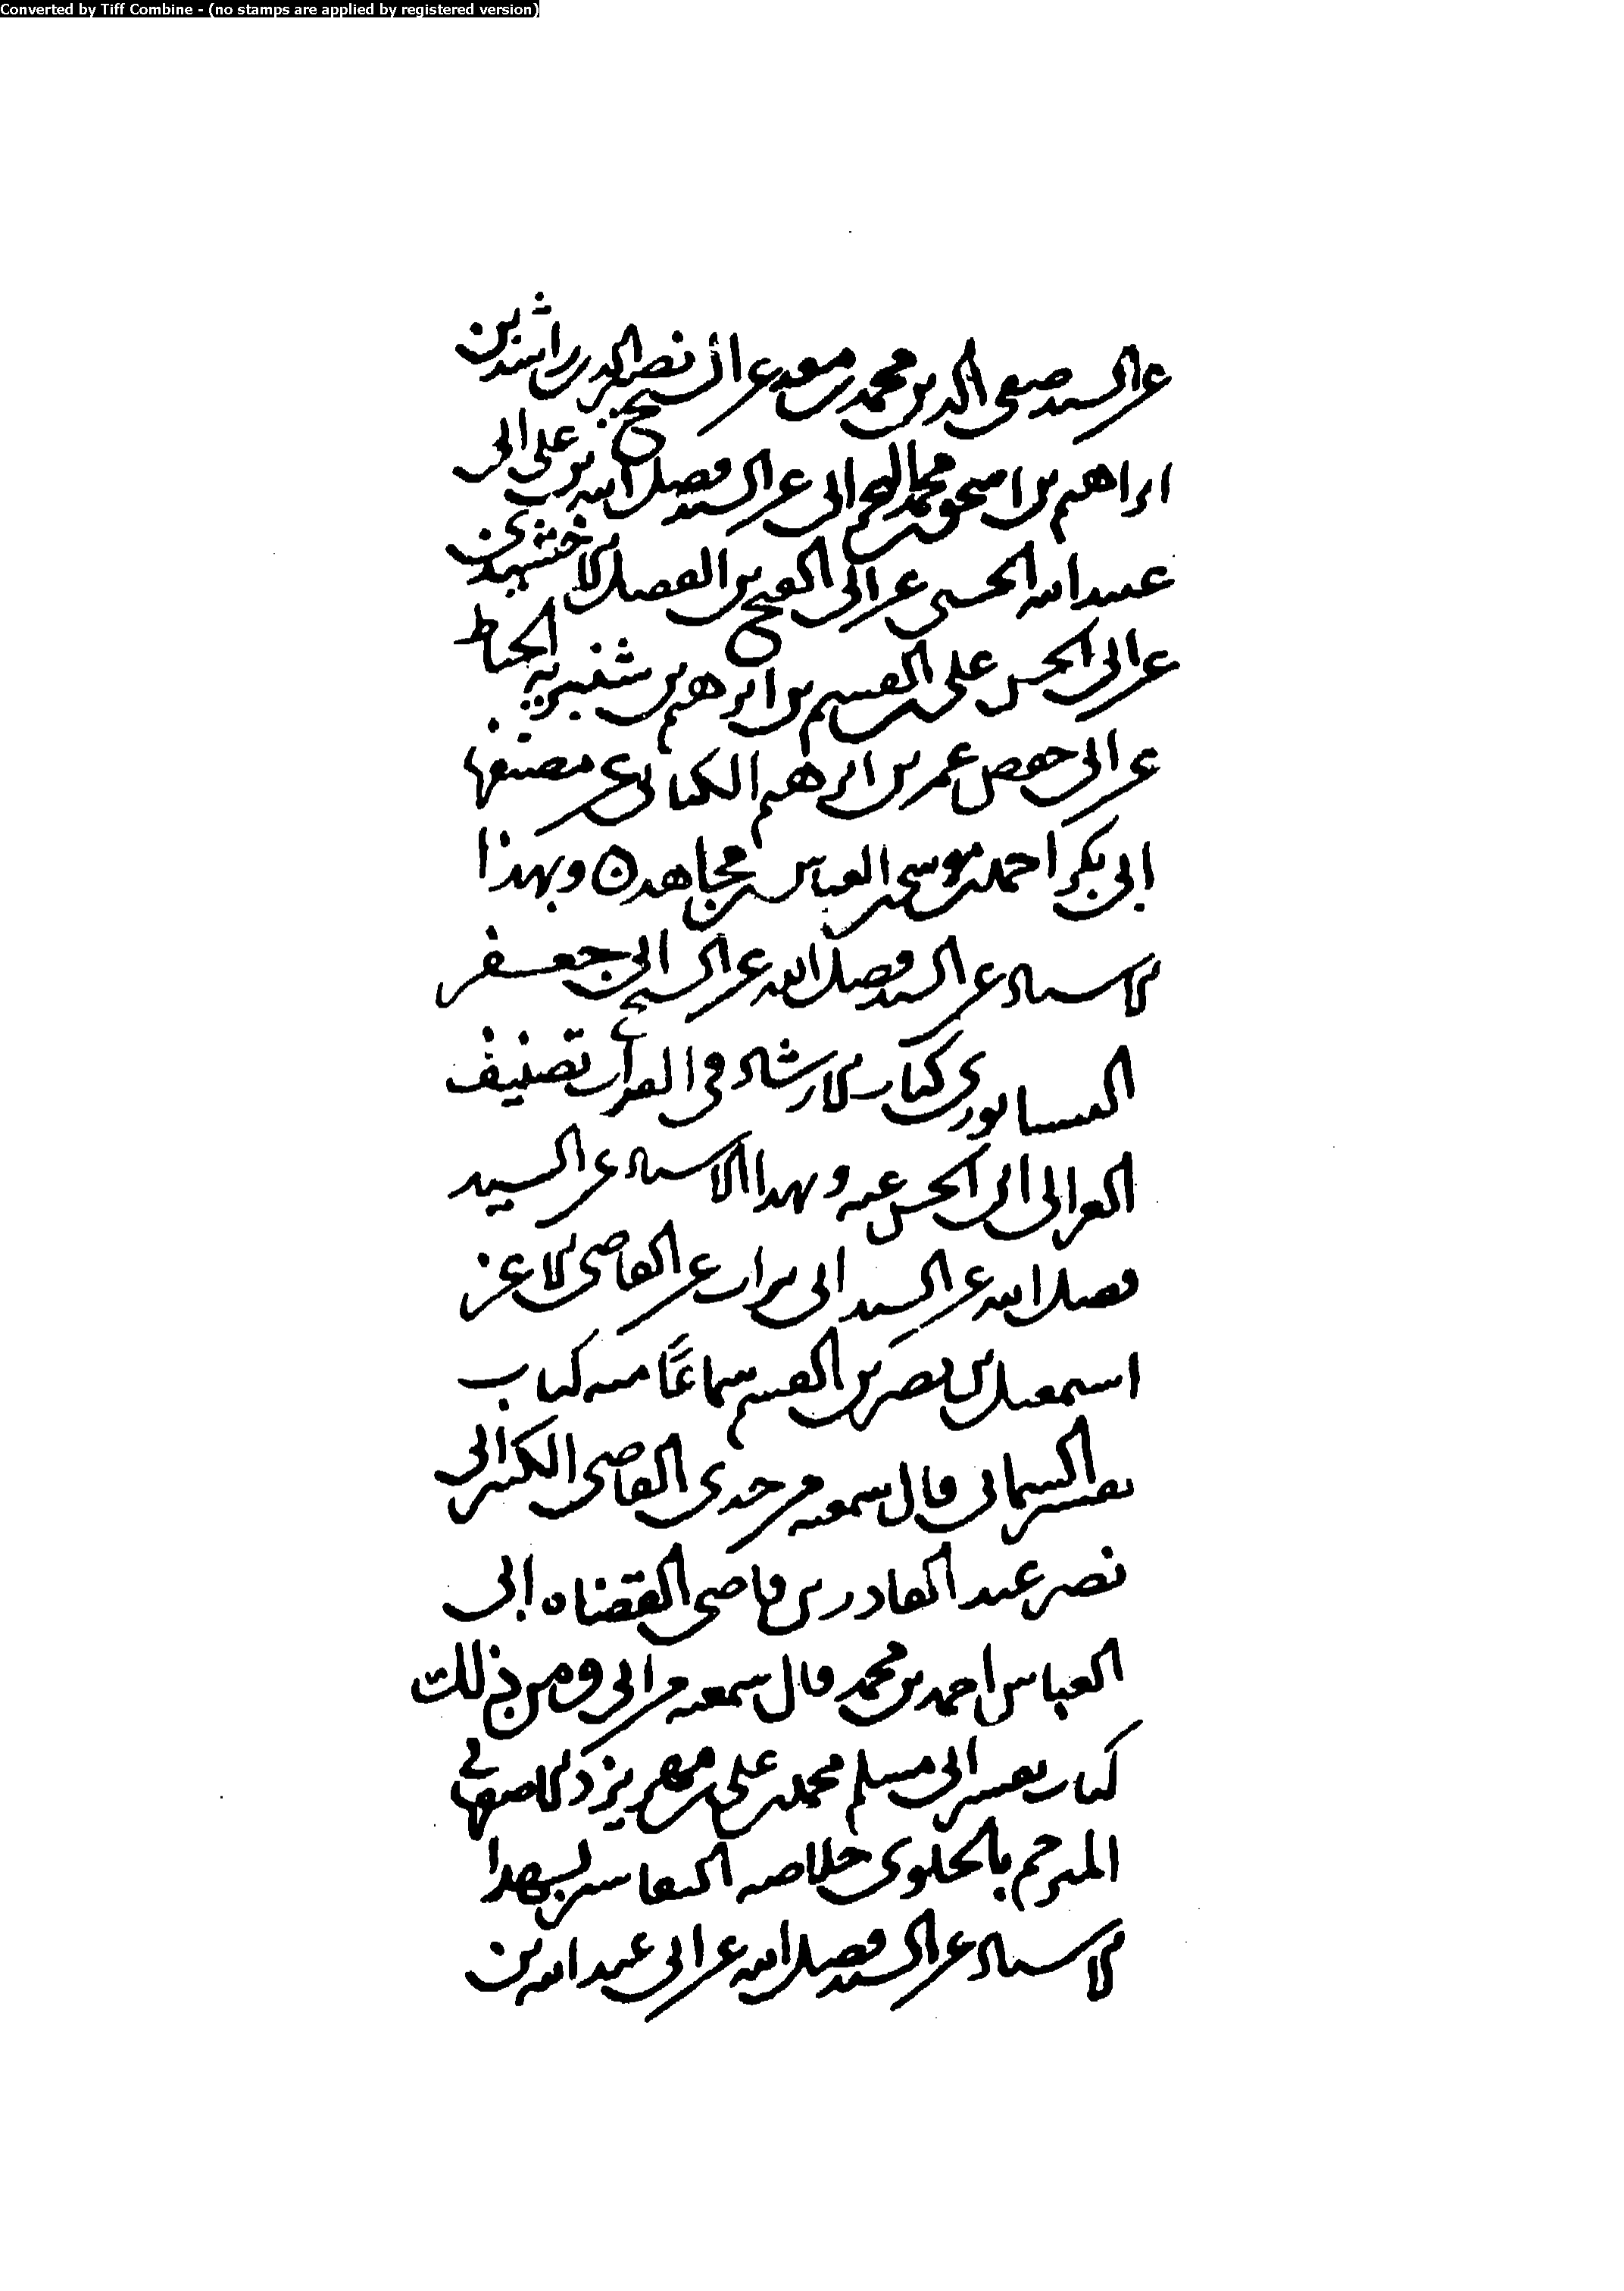 Converted by Tiff Combine - (no stamps are applied by registered version)
عن السيد صفى الدين محمد بن معد عن الشيخ نصير الدين راشد بن
ابراهيم بن اسحق بن محمد البحرانى عن السيد فضل الله بن على ابى
عبيد الله الحسنى عن ابى الفتح بن الفضل الاخشيدى
عن ابى الحسن على بن القسم بن ابرهيم بن شنبويه الخياط
عن ابى حفص عمر بن ابرهيم الكتانى عن مصنفها
ابى بكر احمد بن موسى بن العباس بن مجاهد وبهذا
الاسناد عن السيد فضل الله عن الشيخ ابى جعفر
النيسابورى كتاب الارشاد فى القرآن تصنيف
الغزالى ابى الحسن عنه وبهذا الاسناد عن السيد
فضل الله عن السيد ابى تراب عن القاضى الاعز
اسمعيل بن نصر بن القسم سماعًا منه كتاب
تفسير السمانى قال سمعته من جدى القاضى الكبير ابى
نصر عبد القادر بن قاضى القضاه ابى
العباس احمد بن محمد قال سمعته من ابى ومن ذلك
كتاب تفسير ابى مسلم محمد بن على بن مهريزد الاصفهانى
المترجم بالحلوى خلاصه التفاسير بهذا
الاسناد عن السيد فضل الله عن ابى عبد الله بن